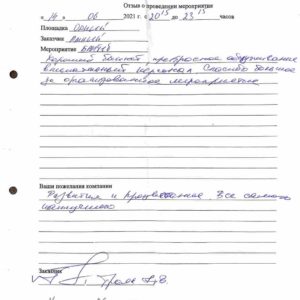 Отзыв о проведении мероприятия
« 14 » 06 2021 г. с 20 15 до 23 15 часов
Площадка
Заказчик
Мероприятие Банкет
Хороший банкет, прекрасное обслуживание
внимательный персонал Спасибо большое
за организованное мероприятие
Ваши пожелания компании
Развития и процветания. Все самого
наилучшего
Заказчик